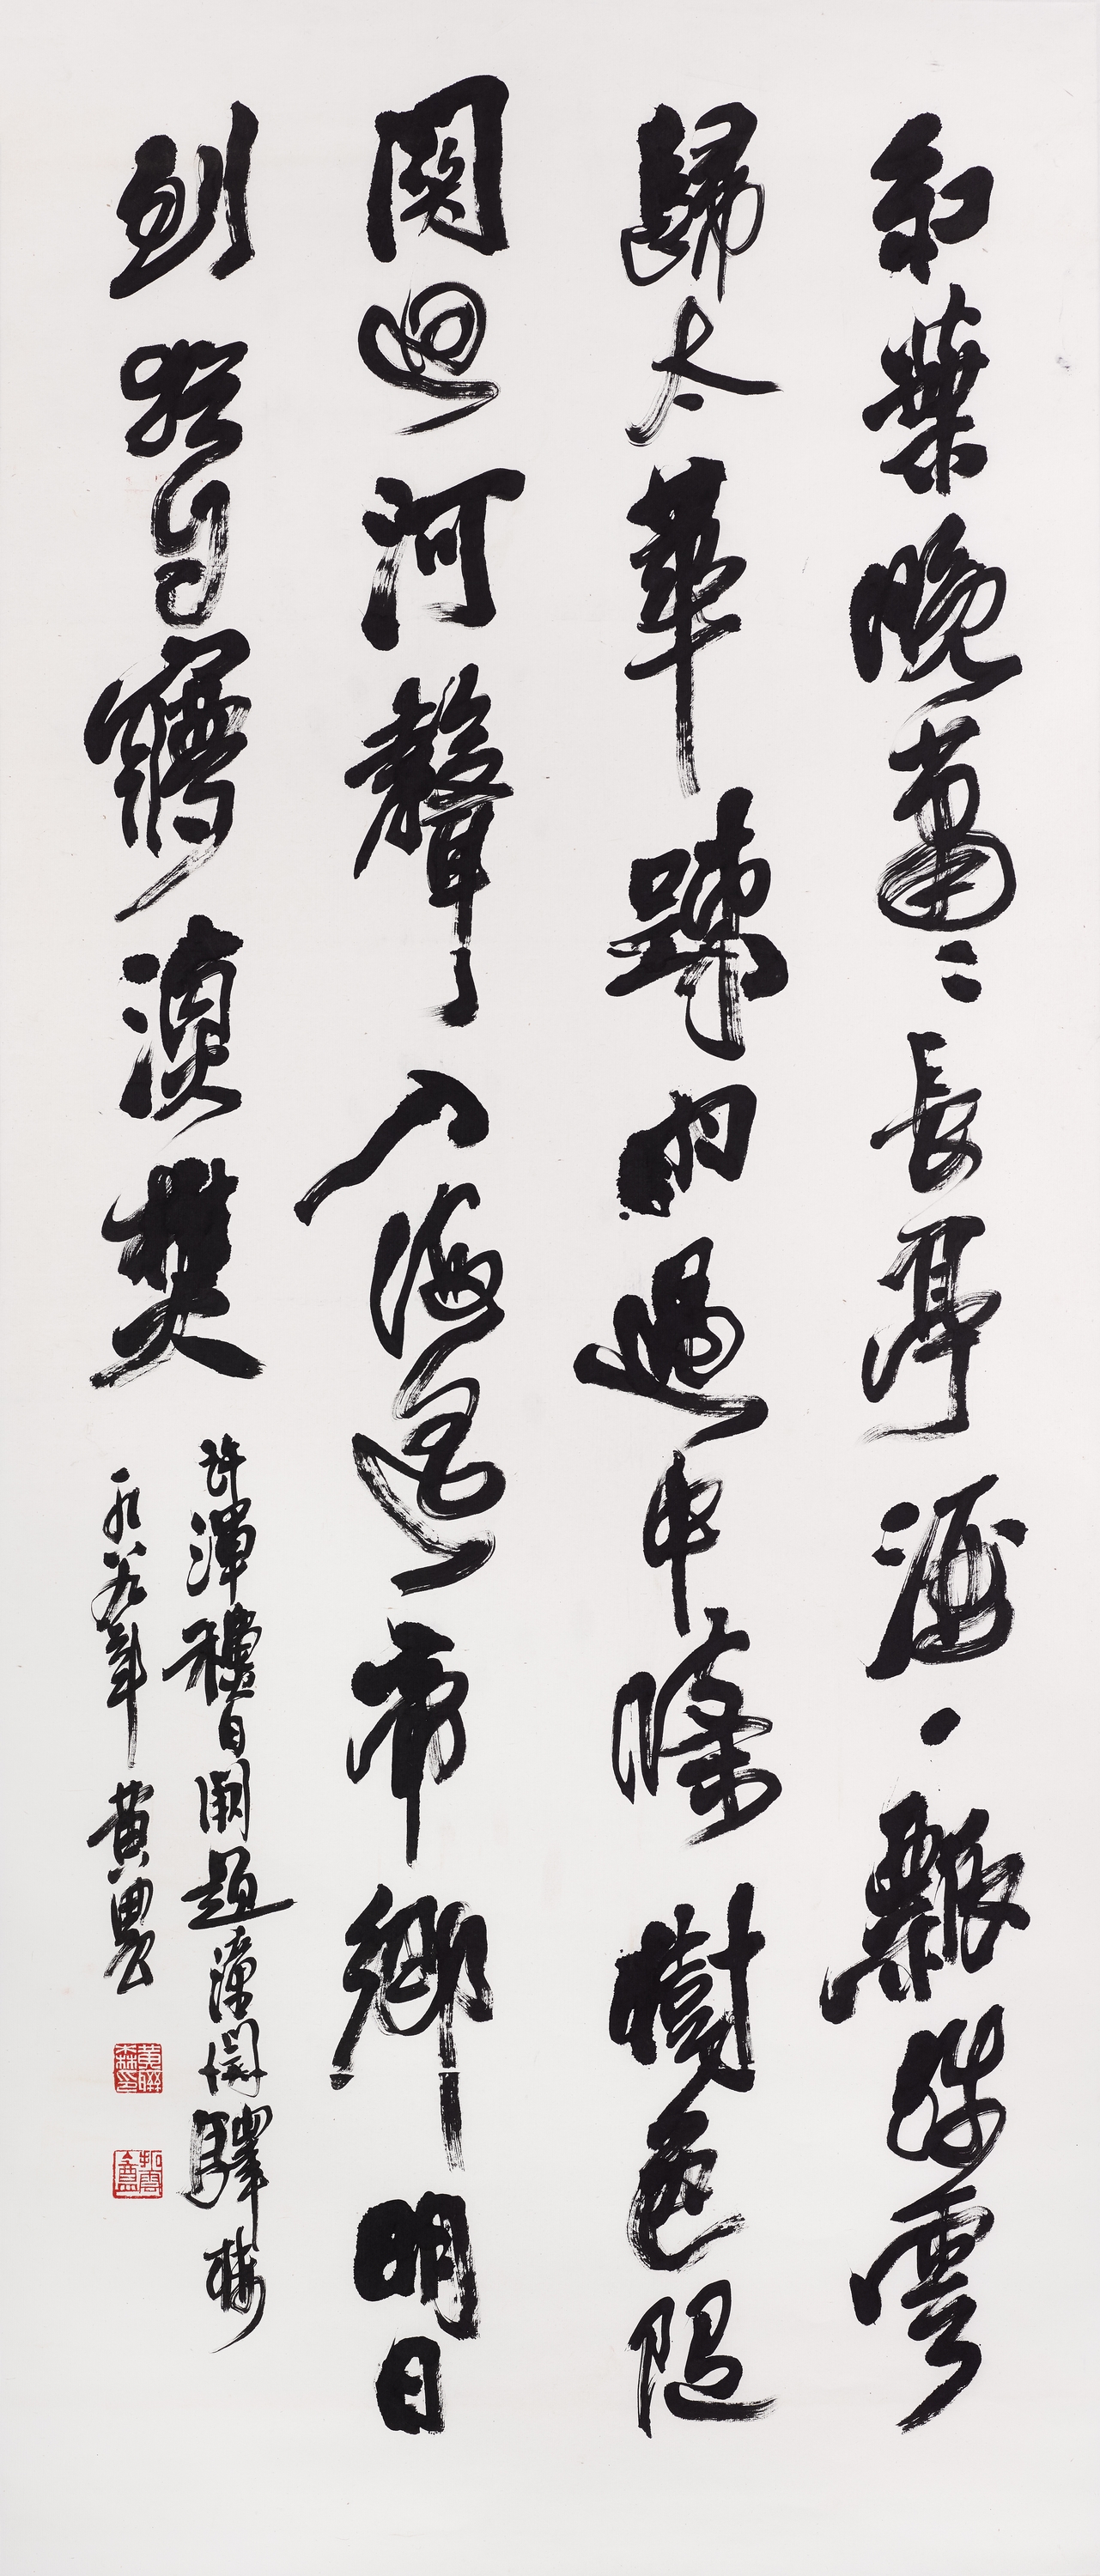 紅葉晚蕭〻長亭酒一瓢殘雲
歸太華踈雨過中條樹色隨
關迥河聲入海遙帝鄉明日
到猶自夢漁樵
許渾穐日闕題潼關驛樓
一九八九年 黃農
黃聯森印